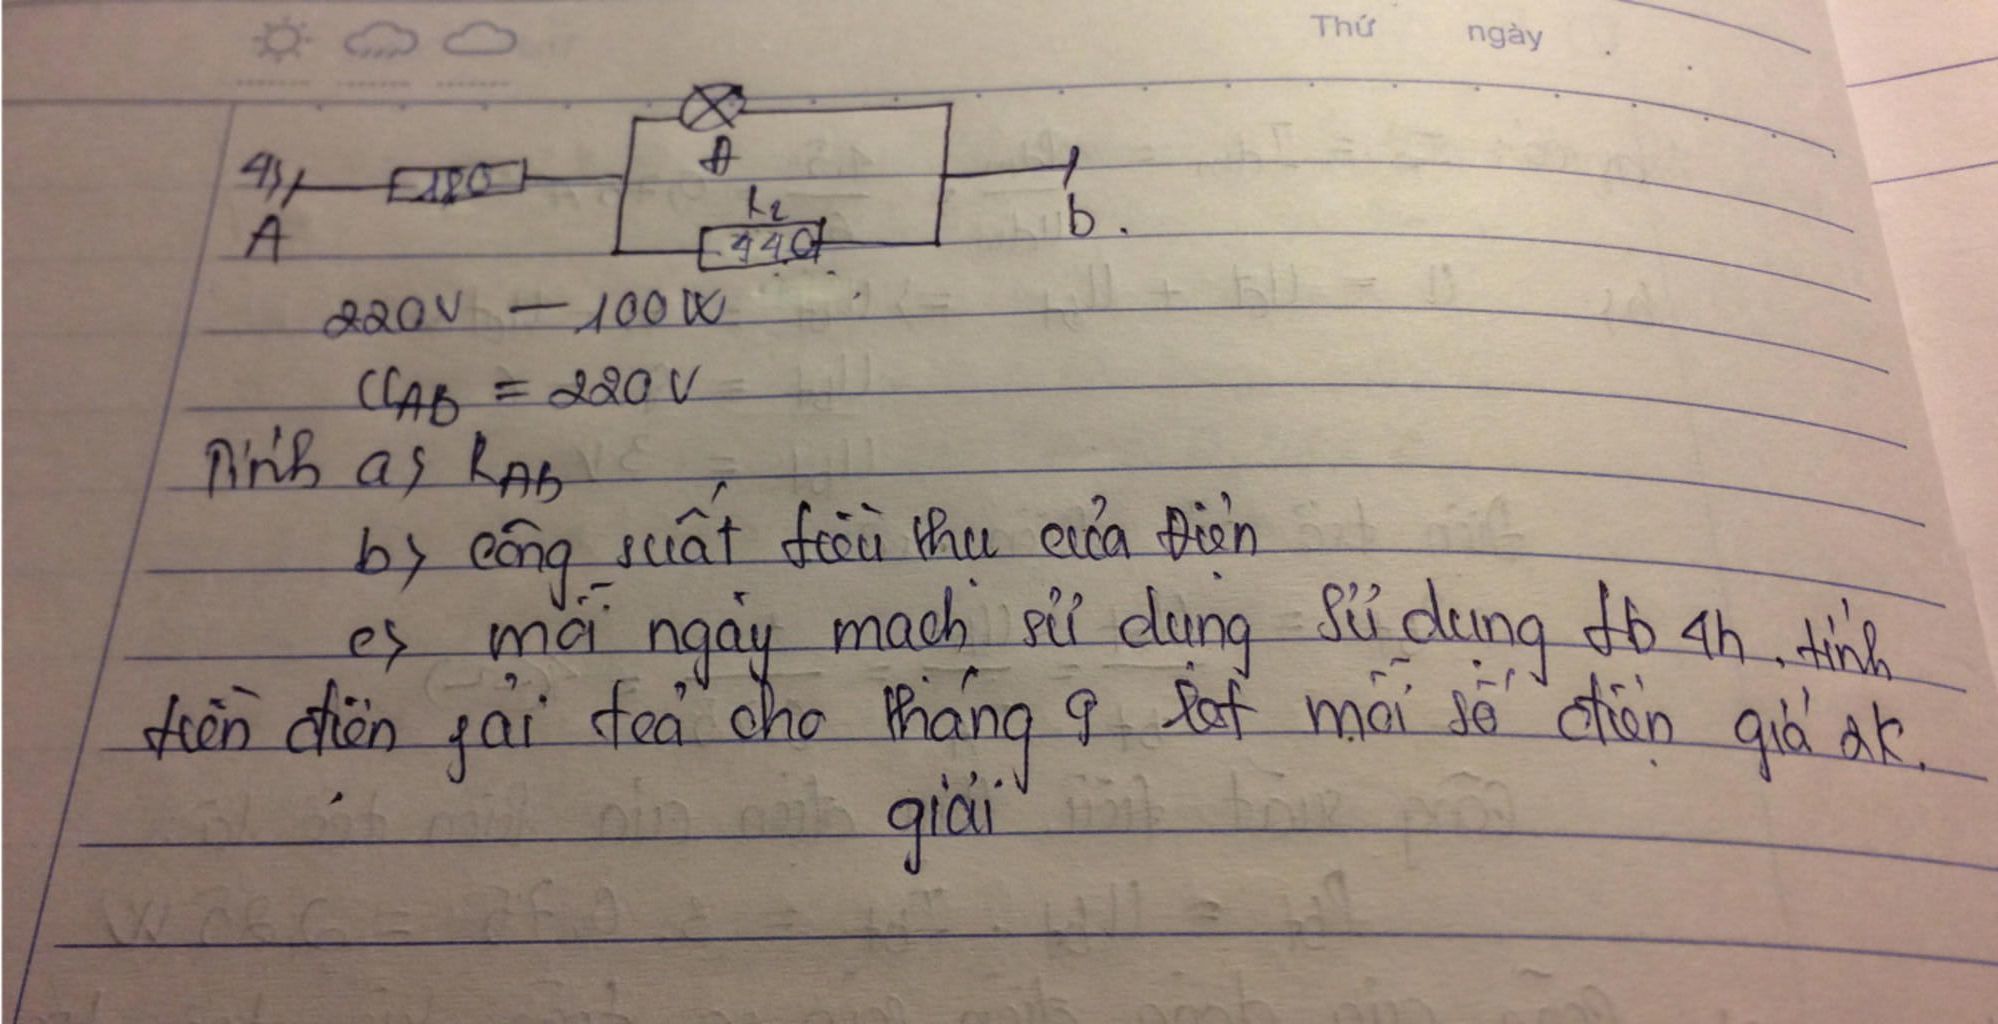 Thứ ngày
4)
A
180
Đ
R2
440
b.
220V - 100W
UAB = 220V
Tính a) RAB
b) công suất tiêu thụ của điện
c) mỗi ngày mạch sử dụng sử dụng tb 4h. tính
tiền điện gải toả cho tháng 9 mỗi số điện giá 2K.
giải